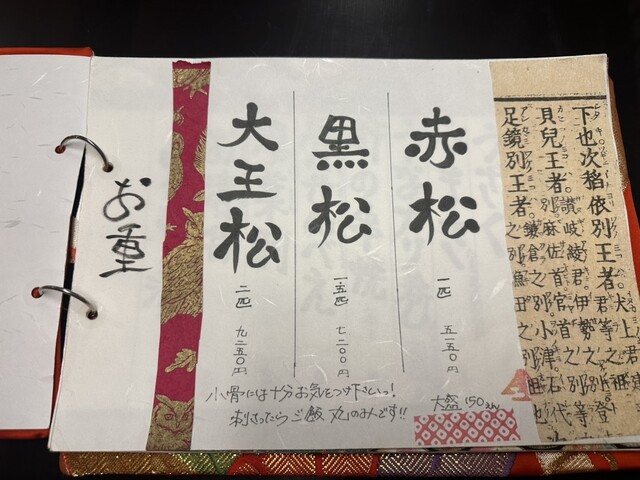 赤松
一匹
五一五〇円
大盛 150えん
黒松
一・五匹
七二〇〇円
大王松
二匹
九二五〇円
お重
小骨には十分お気をつけ下さいっ!
刺さったらご飯丸のみです!!
下也次稻依別王者
貝兒王者
足鏡別王者